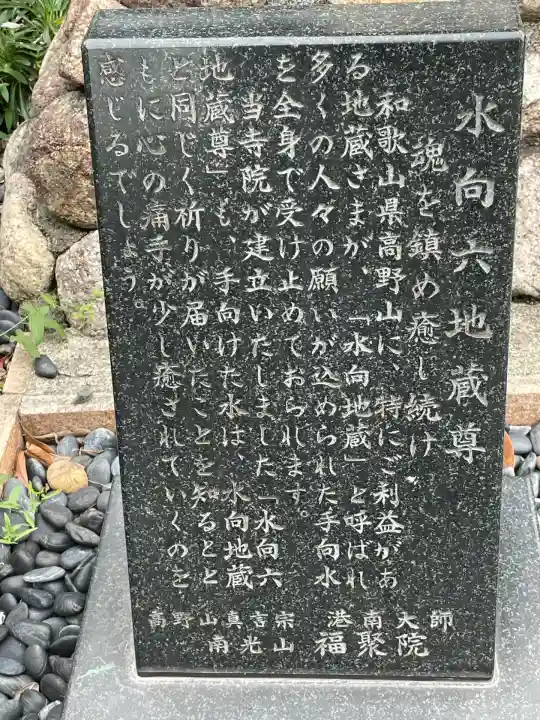 水向六地蔵尊
魂を鎮め癒し続け
和歌山県高野山に、特にご利益があ
る地蔵さまが、「水向地蔵」と呼ばれ
多くの人々の願いが込められた手向水
を全身で受け止めておられます。
当寺院が建立いたしました「水向六
地蔵尊」も、手向けた水は、水向地蔵
と同じく祈りが届いたことを知るとと
もに心の痛手が少し癒されていくのを
感じるでしょう。
港南大師
高野山真言宗
福聚院
南光山